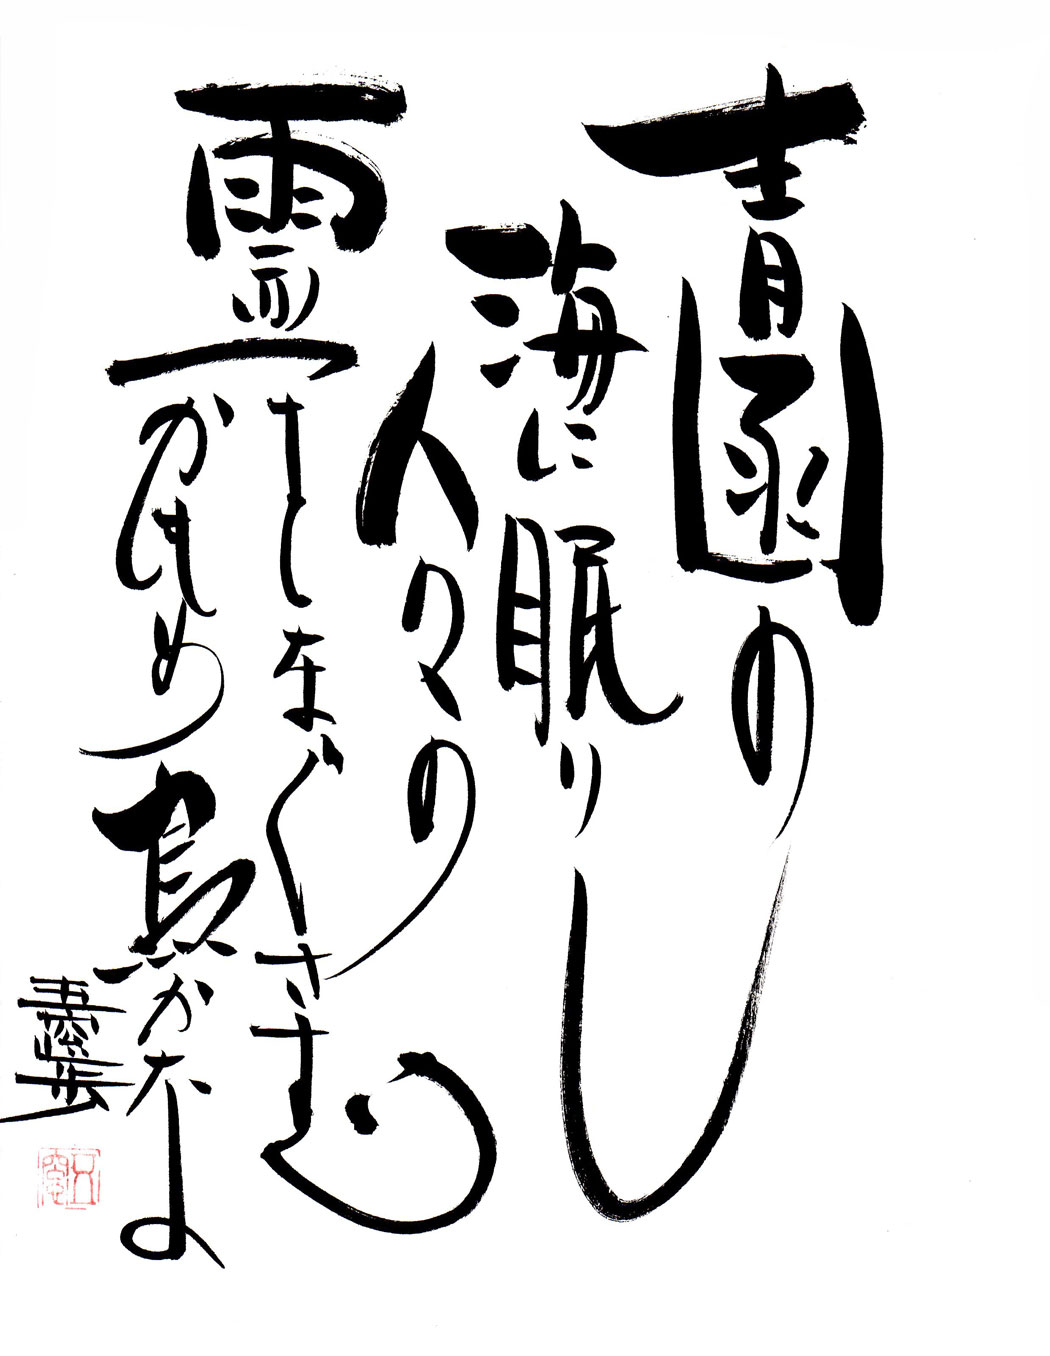 青函の
海に眠りし
人々の
霊をなぐさむ
かもめ鳥かなよ